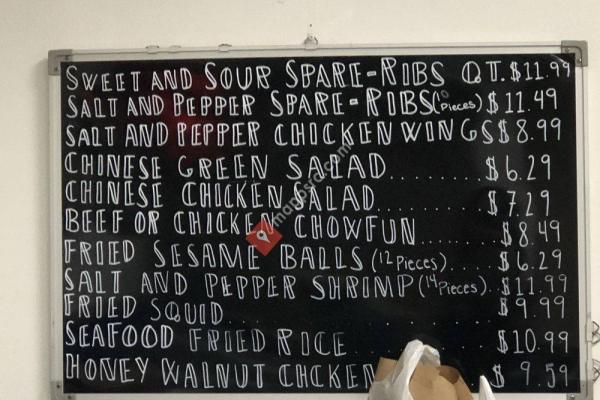 SWEET AND SOUR SPARE-RIBS QT. $11.99
SALT AND PEPPER SPARE-RIBS( Pieces) $11.49
SALT AND PEPPER CHICKEN WINGS $8.99
CHINESE GREEN SALAD......... $6.29
CHINESE CHICKEN SALAD......... $7.29
BEEF OR CHICKEN CHOWFUN......... $8.49
FRIED SESAME BALLS (12 Pieces).... $6.29
SALT AND PEPPER SHRIMP (14 Pieces).. $11.99
FRIED SQUID.......... $9.99
SEAFOOD FRIED RICE.......... $10.99
HONEY WALNUT CHCKEN $9.59